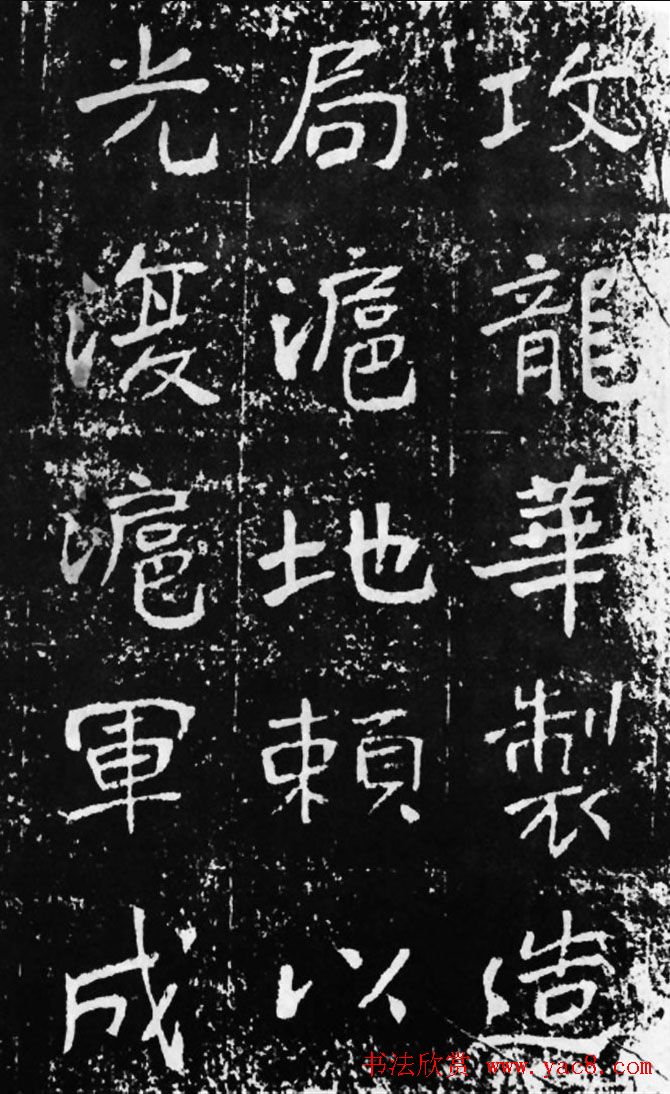 攻龍華製造
局滬地賴以
光復滬軍成
书法欣赏 www.yac8.com